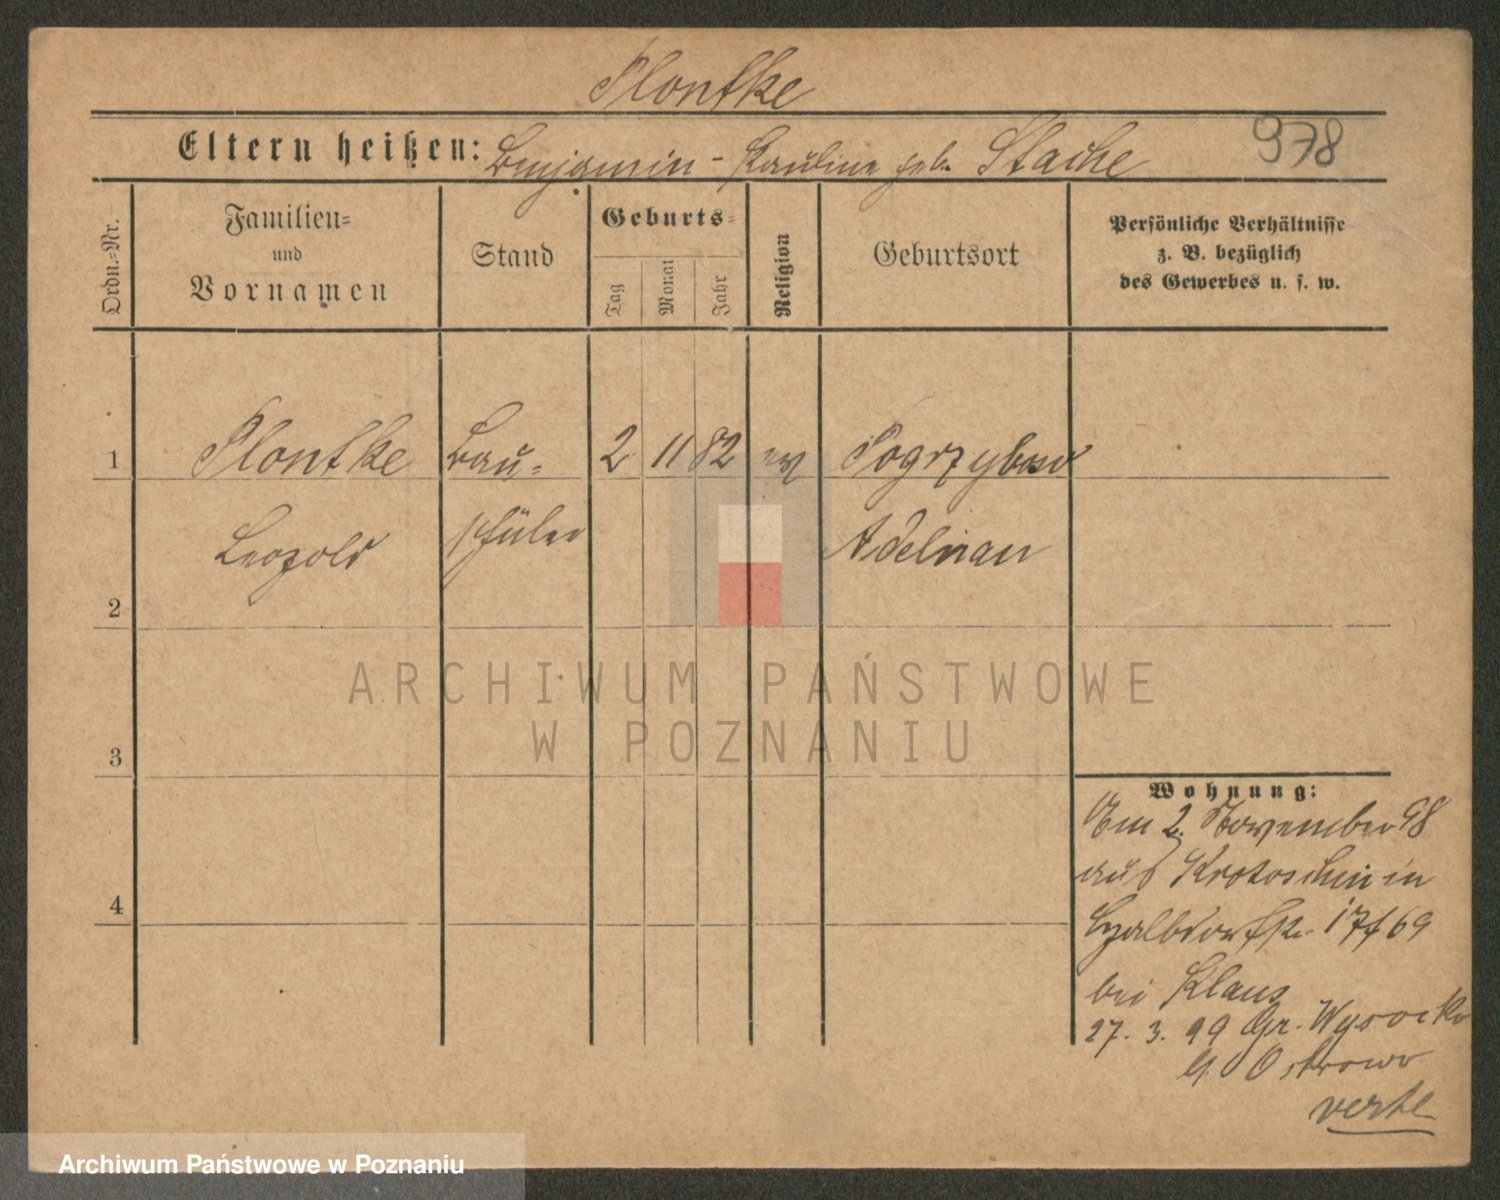 Plontke
Eltern heißen: Benjamin - Pauline geb. Stache
978
Ordn.-Nr.
Familien-
und
Vornamen
Stand
Geburts-
Tag
Monat
Jahr
Religion
Geburtsort
Persönliche Verhältnisse
z. B. bezüglich
des Gewerbes u. s. w.
1 Plontke Bau- 2 11 82 ev Pogrzybow
Leopold schüler Adelnau
2
3
4
ARCHIWUM PAŃSTWOWE
W POZNANIU
Wohnung:
Am 2. November 98
aus Krotoschin in
17/69
bei Klaus
27. 3. 99 Gr. Wysocko
Ostrowo
verte
Archiwum Państwowe w Poznaniu